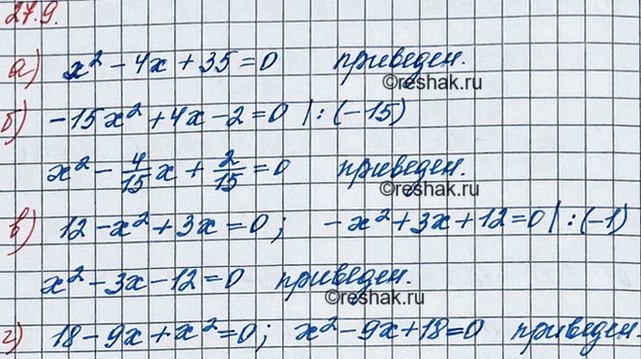 27.9.
а) x² - 4x + 35 = 0 приведен.
©reshak.ru
б) -15x² + 4x - 2 = 0 | : (-15)
x² - 4/15 x + 2/15 = 0 приведен.
©reshak.ru
в) 12 - x² + 3x = 0; -x² + 3x + 12 = 0 | : (-1)
x² - 3x - 12 = 0 приведен.
©reshak.ru
г) 18 - 9x + x² = 0; x² - 9x + 18 = 0 приведен.